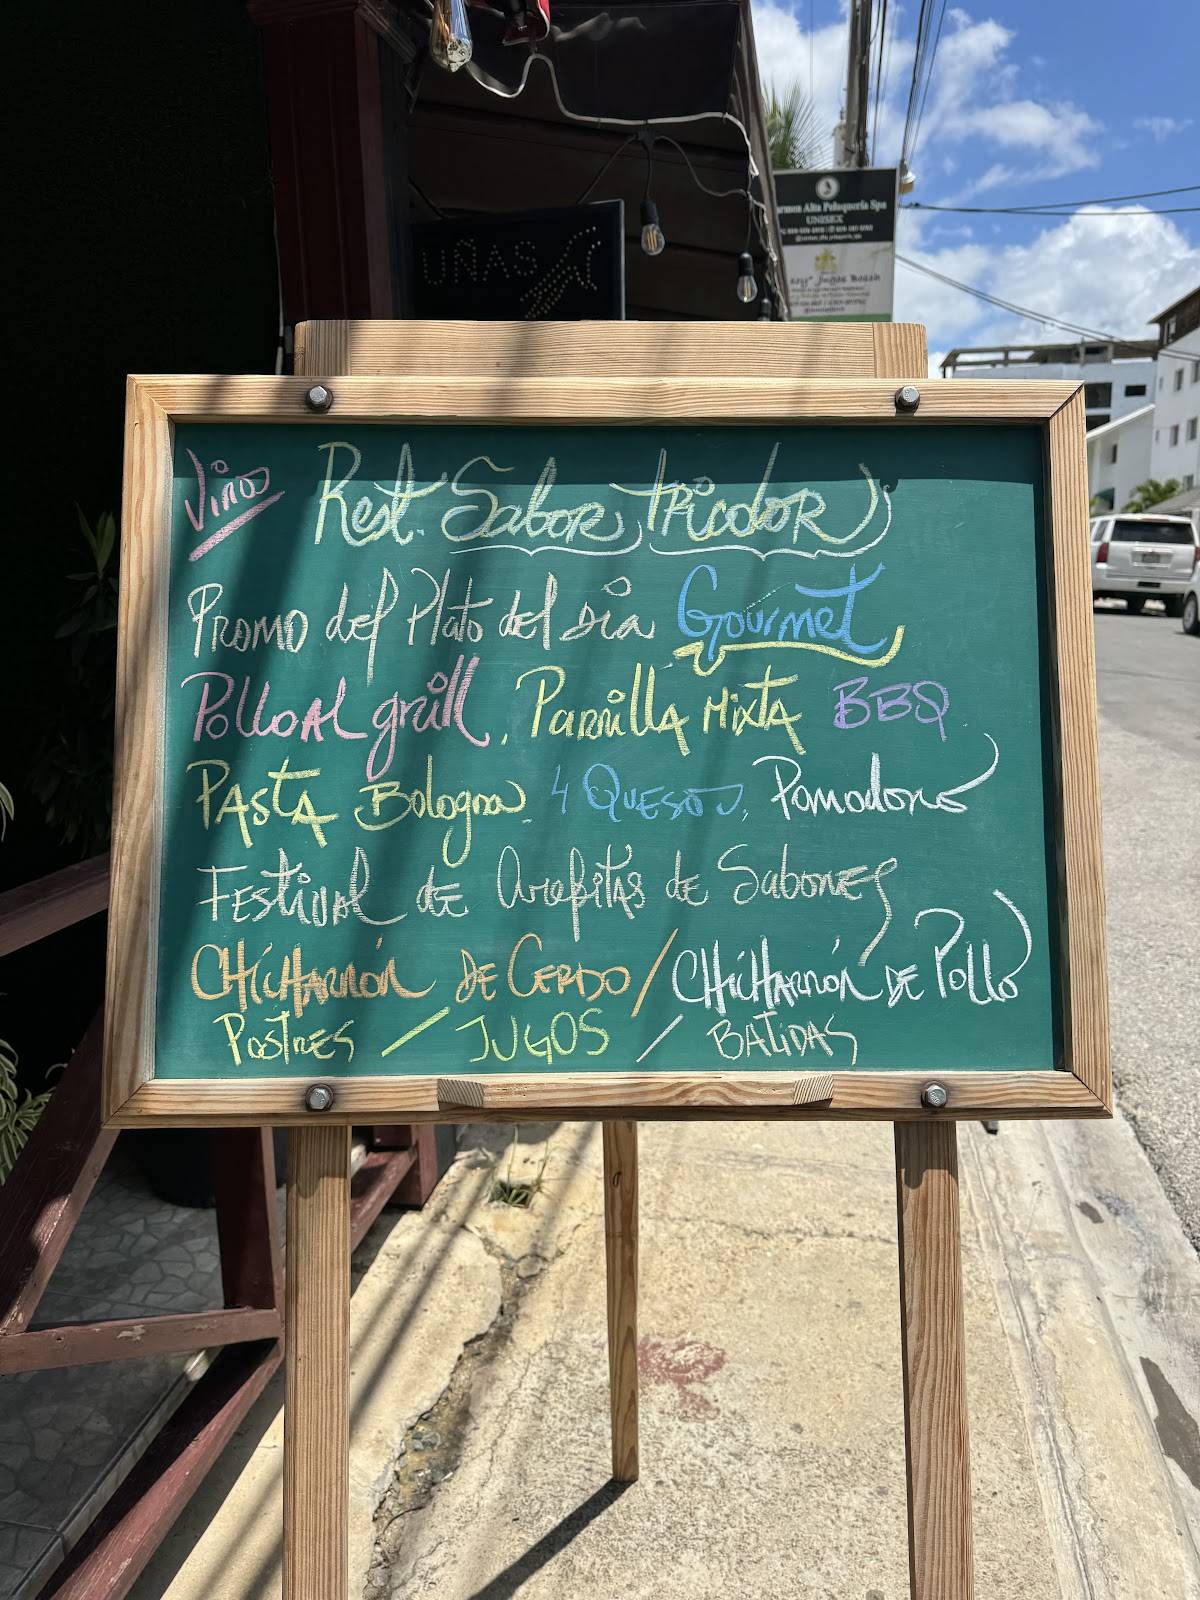 UÑAS
Carmen Alta Peluquería Spa
UNISEX
Vinos Rest. Sabor tricolor
Promo del Plato del Dia Gourmet
Pollo Al grill, Parrilla Mixta BBQ
Pasta Bologna, 4 Quesos, Pomodoro
Festival de Arepitas de Sabores
CHicHarrón de Cerdo / CHicHarrón de Pollo
Postres / JUGOS / Batidas